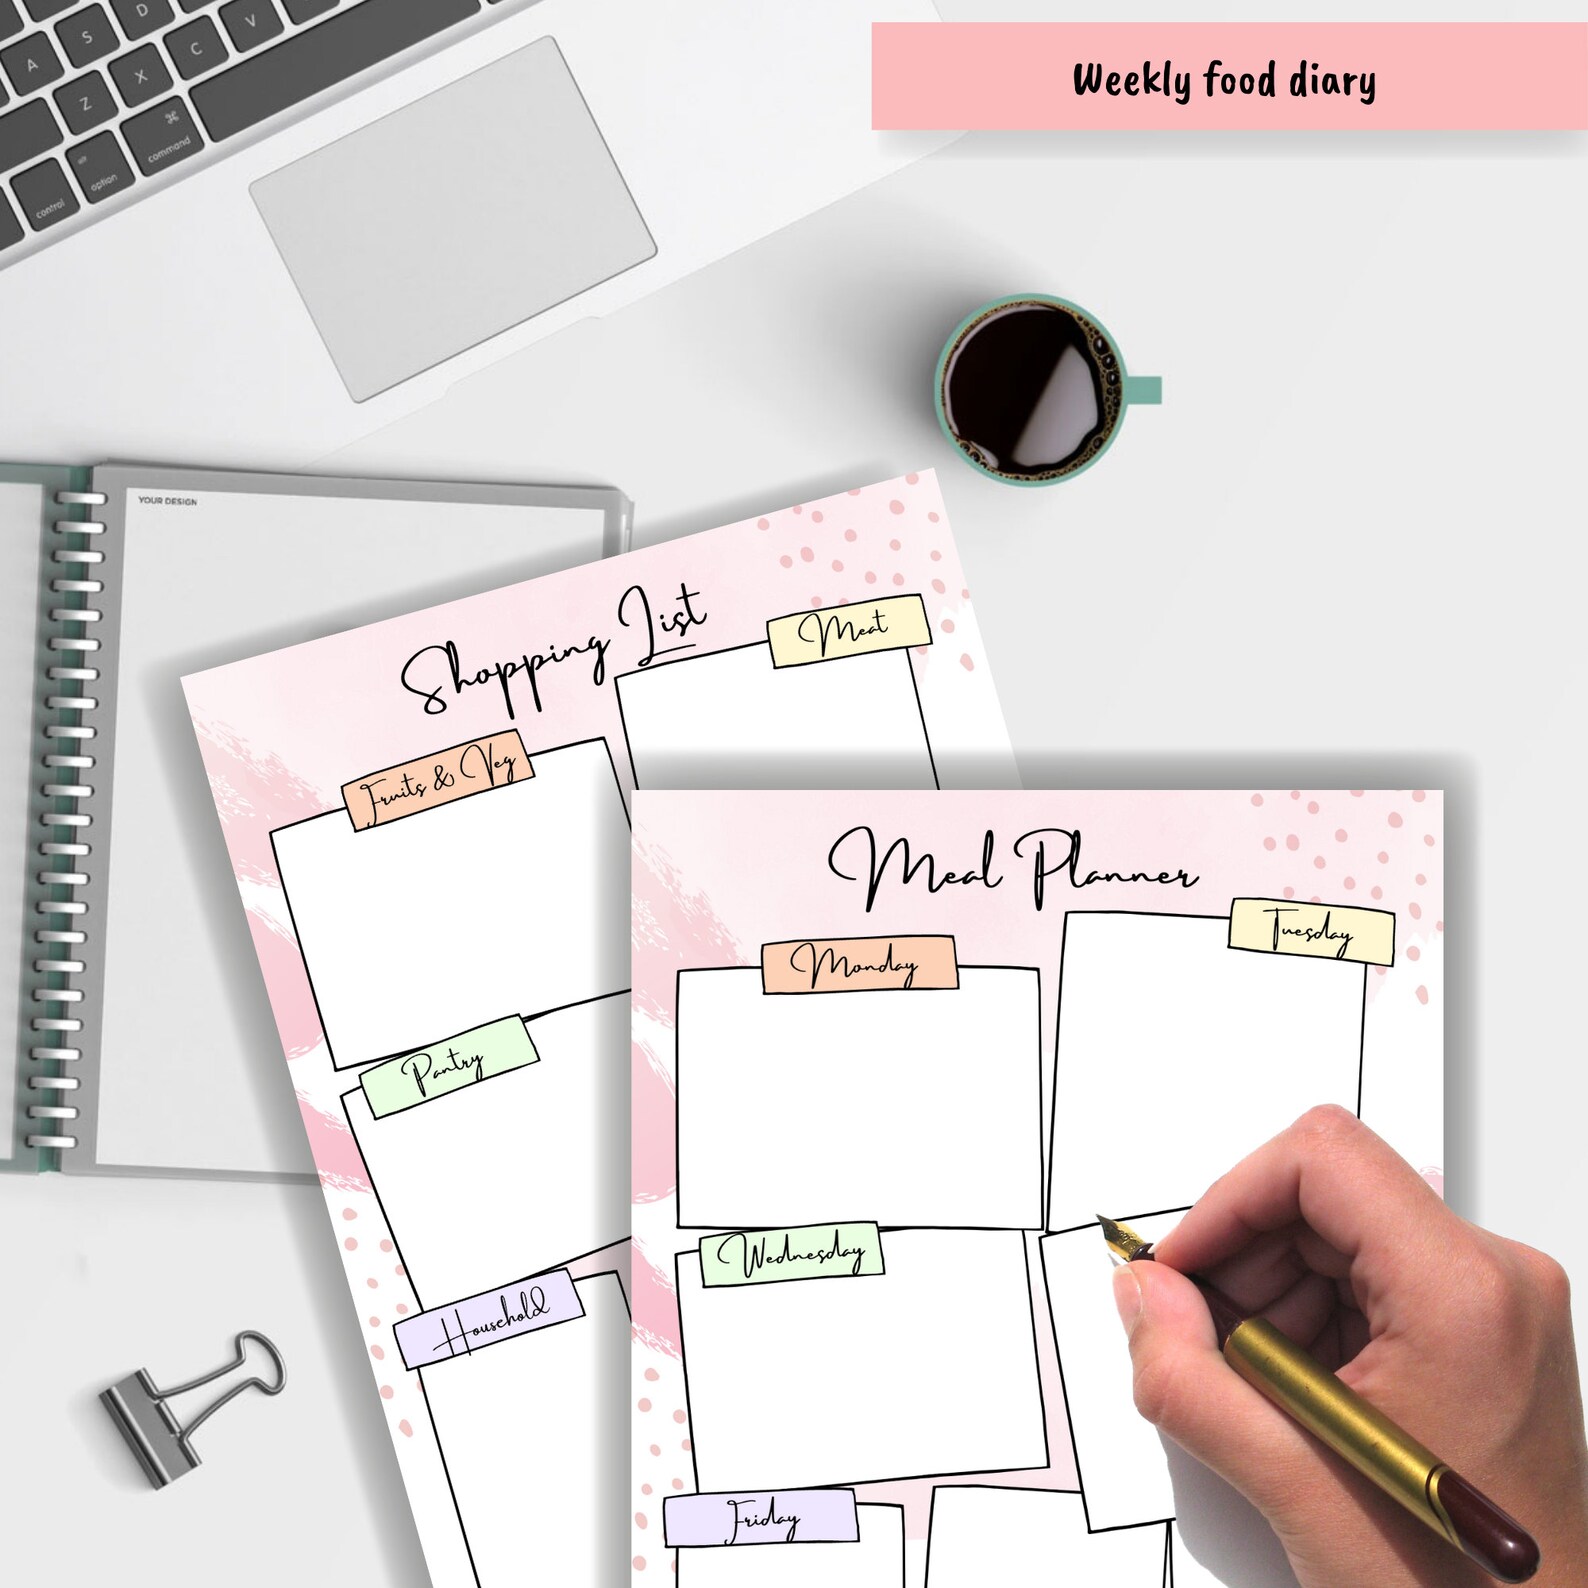 Weekly food diary
A
S
D
Z
X
C
V
⌘
control
alt
option
command
YOUR DESIGN
Shopping List
Meat
Fruits & Veg
Pantry
Household
Meal Planner
Monday
Tuesday
Wednesday
Friday